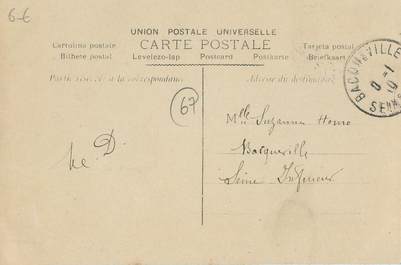 6-6
UNION POSTALE UNIVERSELLE
CARTE POSTALE
Cartolina postale
Tarjeta postal
Bilhete postal
Levelezo-lap
Postcard
Postkarte
Briefkaart
Partie réservée à la correspondance
Adresse du destinataire
BACQUEVILLE
8-1
10
67
Mlle Suzanne Horne
Bacqueville
Seine Inférieure
D.